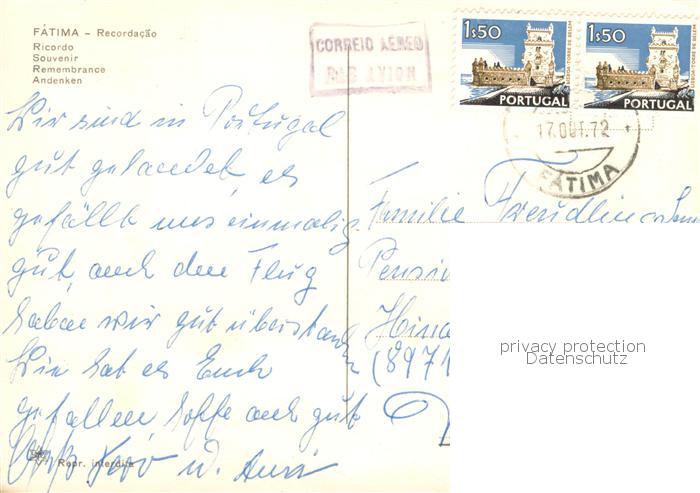 FÁTIMA – Recordação
Ricordo
Souvenir
Remembrance
Andenken
CORREIO AEREO
PAR AVION
1$50
1$50
LISBOA-TORRE DE BELÉM
PORTUGAL
PORTUGAL
17.OUT.72
FÁTIMA
Wir sind in Portugal
gut gelandet, es
gefällt uns einmalig
gut, auch den Flug
haben wir gut überstanden
Wie hat es Euch
gefallen hoffe auch gut
Gruß u.
Familie
Pensio
(8971
privacy protection
Datenschutz
Repr. interdite